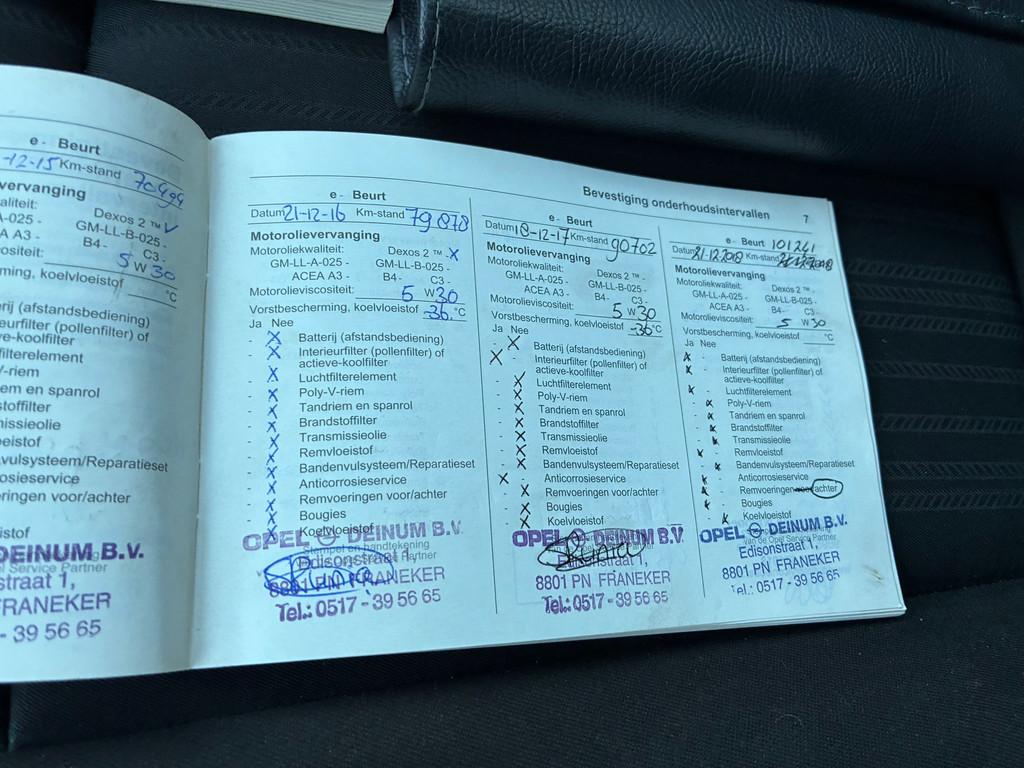 e - Beurt
-12-15 Km-stand 70494
vervanging
aliteit: Dexos 2 ™ ✓
A-025 - GM-LL-B-025 -
A A3 - B4 - C3 -
ositeit: 5 W 30
ming, koelvloeistof °C
erij (afstandsbediening)
eurfilter (pollenfilter) of
ve-koolfilter
filterelement
/-riem
em en spanrol
stoffilter
issieolie
eistof
vulsysteem/Reparatieset
osieservice
eringen voor/achter
stof
DEINUM B.V.
el Service Partner
straat 1,
FRANEKER
- 39 56 65
e - Beurt
Datum 21-12-16 Km-stand 79 878
Motorolievervanging
Motoroliekwaliteit: Dexos 2 ™ - X
GM-LL-A-025 - GM-LL-B-025 -
ACEA A3 - B4 - C3 -
Motorolieviscositeit: 5 W 30
Vorstbescherming, koelvloeistof -36 °C
Ja Nee
- X Batterij (afstandsbediening)
- X Interieurfilter (pollenfilter) of
actieve-koolfilter
- X Luchtfilterelement
- X Poly-V-riem
- X Tandriem en spanrol
- X Brandstoffilter
- X Transmissieolie
- X Remvloeistof
- X Bandenvulsysteem/Reparatieset
- X Anticorrosieservice
- X Remvoeringen voor/achter
- X Bougies
- X Koelvloeistof
OPEL DEINUM B.V.
Stempel en handtekening
Edisonstraat 1,
8801 PN FRANEKER
Tel.: 0517 - 39 56 65
Bevestiging onderhoudsintervallen 7
e - Beurt
Datum 18-12-17 Km-stand 90702
Motorolievervanging
Motoroliekwaliteit: Dexos 2 ™ -
GM-LL-A-025 - GM-LL-B-025 -
ACEA A3 - B4 - C3 -
Motorolieviscositeit: 5 W 30
Vorstbescherming, koelvloeistof -36 °C
Ja Nee
- X Batterij (afstandsbediening)
X - Interieurfilter (pollenfilter) of
actieve-koolfilter
- X Luchtfilterelement
- X Poly-V-riem
- X Tandriem en spanrol
- X Brandstoffilter
- X Transmissieolie
- X Remvloeistof
- X Bandenvulsysteem/Reparatieset
X - Anticorrosieservice
- X Remvoeringen voor/achter
- X Bougies
- X Koelvloeistof
OPEL DEINUM B.V.
Edisonstraat 1,
8801 PN FRANEKER
Tel.: 0517 - 39 56 65
e - Beurt 101241
Datum 21-12-2018 Km-stand
Motorolievervanging
Motoroliekwaliteit: Dexos 2 ™ -
GM-LL-A-025 - GM-LL-B-025 -
ACEA A3 - B4 - C3 -
Motorolieviscositeit: 5 W 30
Vorstbescherming, koelvloeistof °C
Ja Nee
X - Batterij (afstandsbediening)
X - Interieurfilter (pollenfilter) of
actieve-koolfilter
X - Luchtfilterelement
- X Poly-V-riem
- X Tandriem en spanrol
- X Brandstoffilter
- X Transmissieolie
X - Remvloeistof
- X Bandenvulsysteem/Reparatieset
X - Anticorrosieservice
X - Remvoeringen voor/achter
X - Bougies
- X Koelvloeistof
OPEL DEINUM B.V.
van de Opel Service Partner
Edisonstraat 1,
8801 PN FRANEKER
Tel.: 0517 - 39 56 65